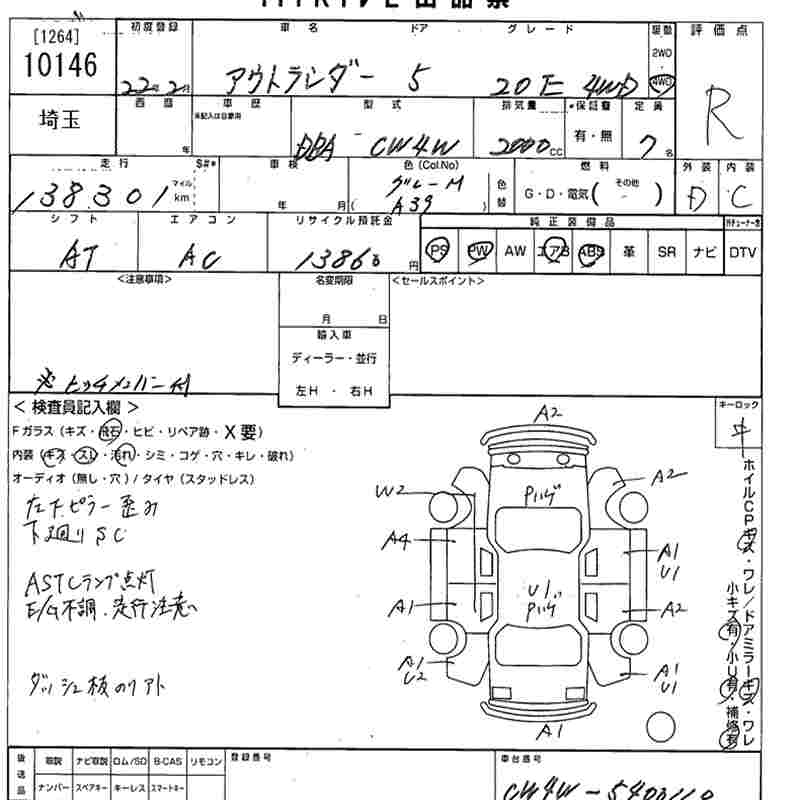 [1264]
10146
埼玉
初度登録
22年2月
車名 ドア グレード
アウトランダー 5 20E 4WD
駆動
2WD
4WD
評価点
R
西暦
年
車歴
未記入は自家用
型式
DBA CW4W
排気量
2000cc
*保証書
有・無
定員
7名
走行 $#*
138301 マイル km
車検
年 月
色(Col.No)
グレーM
( A39 )
色替
燃料
G・D・電気( その他 )
外装
D
内装
C
シフト
AT
エアコン
AC
リサイクル預託金
13860円
純正装備品
PS PW AW エアB ABS 革 SR ナビ DTV
<注意事項>
ヒッチメンバー付
名変期限
月 日
輸入車
ディーラー・並行
左H・右H
<セールスポイント>
<検査員記入欄>
Fガラス(キズ・飛石・ヒビ・リペア跡・X要)
内装(キズ・スレ・汚れ・シミ・コゲ・穴・キレ・破れ)
オーディオ(無し・穴)/タイヤ(スタッドレス)
左下ピラー歪み
下廻りSC
ASTCランプ点灯
E/G不調、走行注意
キーロック
A2
W2
A2
A4
A1
U1
A1
U1
A2
A1
U2
A1
U1
A1
ホイルCPキズ・ワレ/ドアミラーキズ・ワレ
小キズ有・小U有・補修有
返送品
取説 ナビ取説 ロム/SD B-CAS リモコン
ナンバー スペアキー キーレス スマートキー
登録番号
車台番号